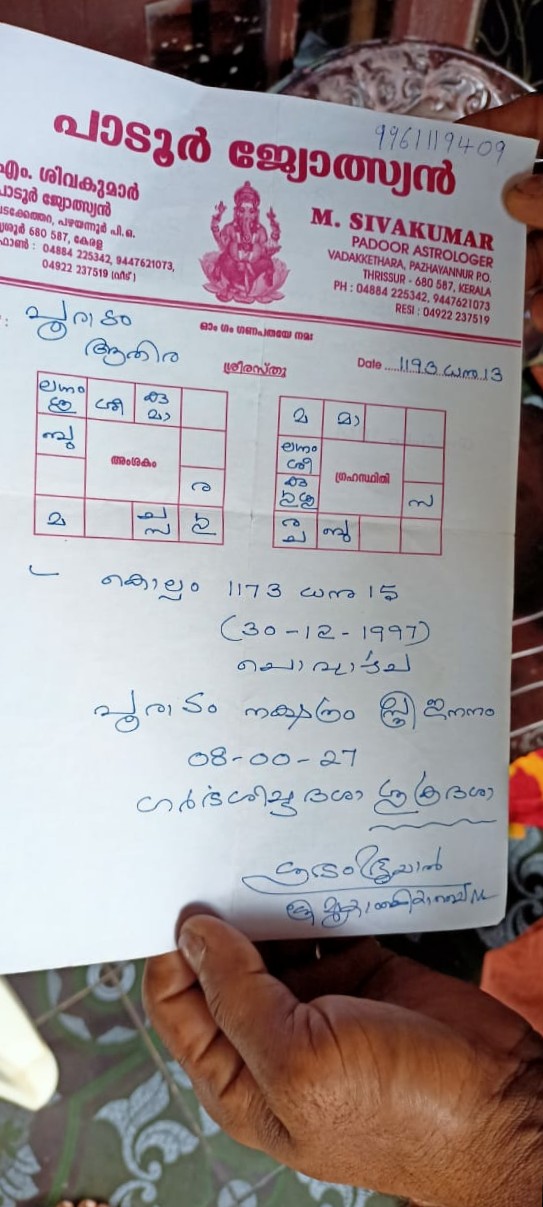 9961119409
പാടൂർ ജ്യോത്സ്യൻ
എം. ശിവകുമാർ
പാടൂർ ജ്യോത്സ്യൻ
വടക്കേത്തറ, പഴയന്നൂർ പി.ഒ.
തൃശൂർ 680 587, കേരള
ഫോൺ : 04884 225342, 9447621073,
04922 237519 (വീട്)
M. SIVAKUMAR
PADOOR ASTROLOGER
VADAKKETHARA, PAZHAYANNUR P.O.
THRISSUR - 680 587, KERALA
PH : 04884 225342, 9447621073
RESI : 04922 237519
ഓം ഗം ഗണപതയേ നമഃ
പൂരാടം
ആതിര
ശ്രീരസ്തു
Date 1193 ധനു 13
ലഗ്നം
ശു ശി കു
മാ
ബു
അംശകം
ര
മ ച
സ
മ മാ
ലഗ്നം
ശി
ഗ്രഹസ്ഥിതി
കു
സ
ര
ച ബു
കൊല്ലം 1173 ധനു 15
(30-12-1997)
ചൊവ്വാഴ്ച
പൂരാടം നക്ഷത്രം സ്ത്രീ ജനനം
08-00-27
ഗർഭശിഷ്ട ദശാ ശുക്രദശാ